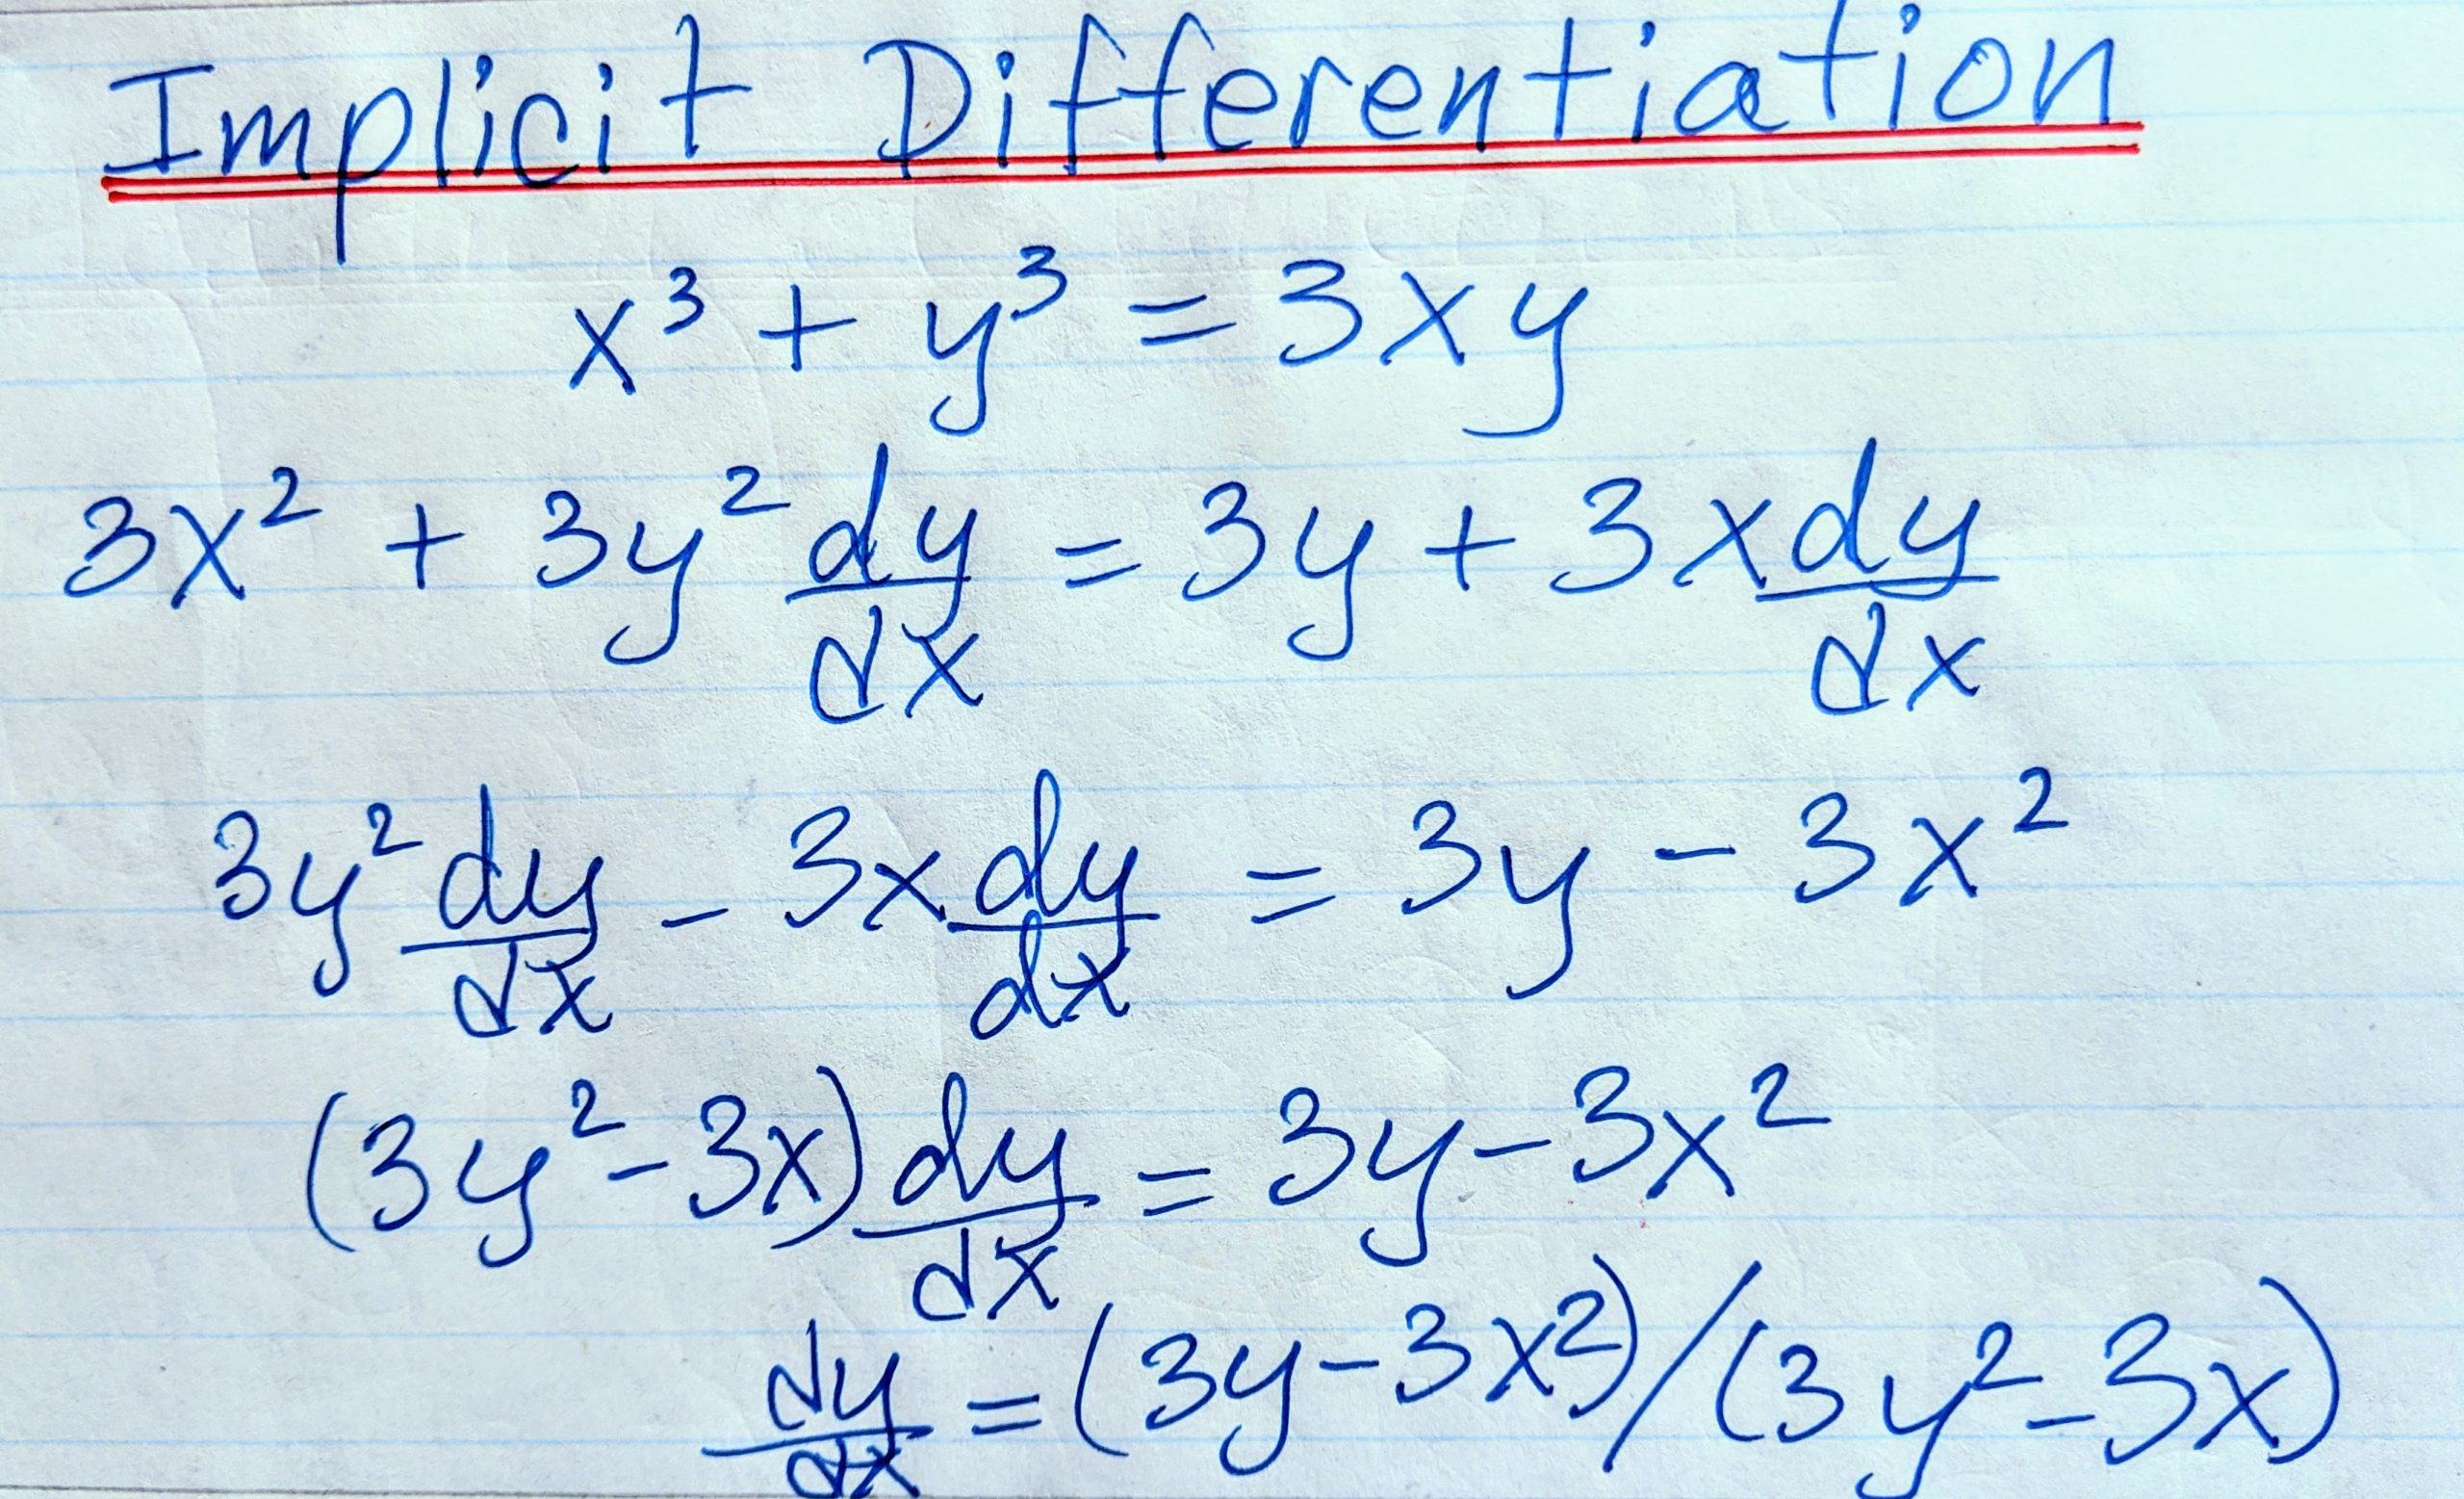 Implicit Differentiation
x³ + y³ = 3xy
3x² + 3y² dy/dx = 3y + 3x dy/dx
3y² dy/dx - 3x dy/dx = 3y - 3x²
(3y² - 3x) dy/dx = 3y - 3x²
dy/dx = (3y - 3x²)/(3y² - 3x)